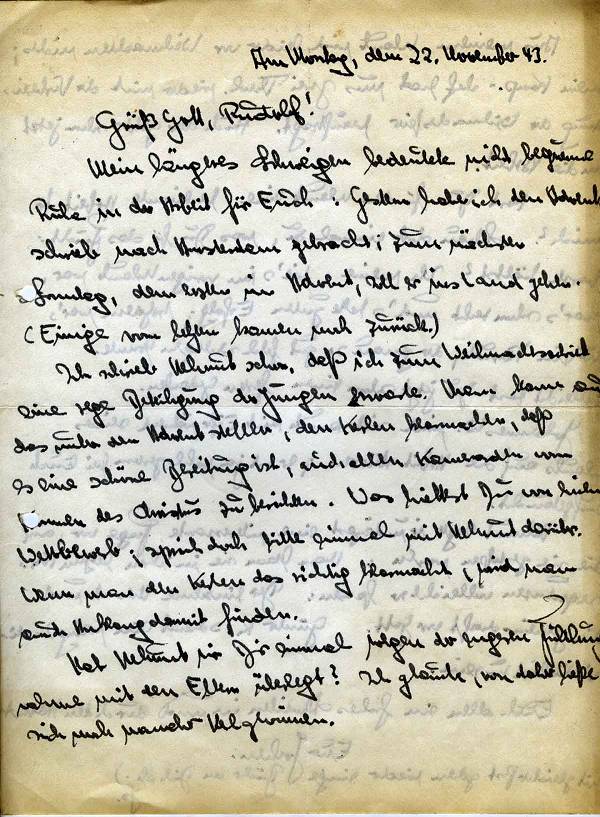 Am Montag, dem 22. November 43.
Grüß Gott, Rudolf!
Mein längeres Schweigen bedeutete nicht bequeme
Ruhe in der Arbeit für Euch. Gestern habe ich den Advent
schrieb nach Amsterdam gebracht; zum nächsten
Sonntag, dem ersten im Advent, soll er ins Land gehen.
(Einige vom letzten kamen noch zurück.)
Ich schrieb Helmut schon, daß ich zum Weihnachtsschrieb
eine rege Beteiligung der Jungen erwarte. Man kann auch
das unter den Advent stellen, den Kerlen klarmachen, daß
es eine schöne Bereitung ist, auch allen Kameraden vom
Kommen des Christus zu berichten. Was hieltest Du von
Wettbewerb; sprich doch bitte einmal mit Helmut darüber.
Wenn man den Kerlen das richtig klarmacht, wird man
auch Anklang damit finden.
Hat Helmut mit Dir einmal wegen der engeren Fühlung
nahme mit den Eltern überlegt? Ich glaube, von daher ließe
sich noch mancher Kerl gewinnen.